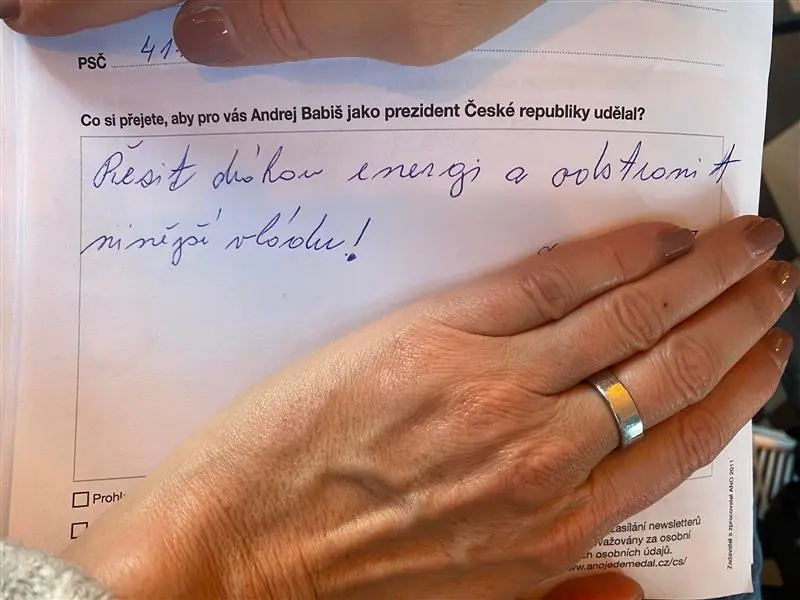 PSČ 41
Co si přejete, aby pro vás Andrej Babiš jako prezident České republiky udělal?
Řěsit dráhou energi a odstranit
ninější vládu!
Prohl
zasílání newsletterů
važovány za osobní
h osobních údajů.
ww.anojedemedal.cz/cs/
Zadavatel a zpracovatel ANO 2011